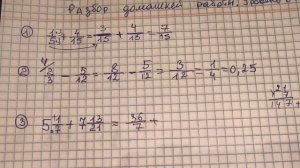 Разбор домашней работы
① 1/5 + 4/15 = 3/15 + 4/15 = 7/15
② 2/3 - 5/12 = 8/12 - 5/12 = 3/12 = 1/4 = 0,25
③ 5 4/7 + 7 13/21 = 36/7 +
21
7
147